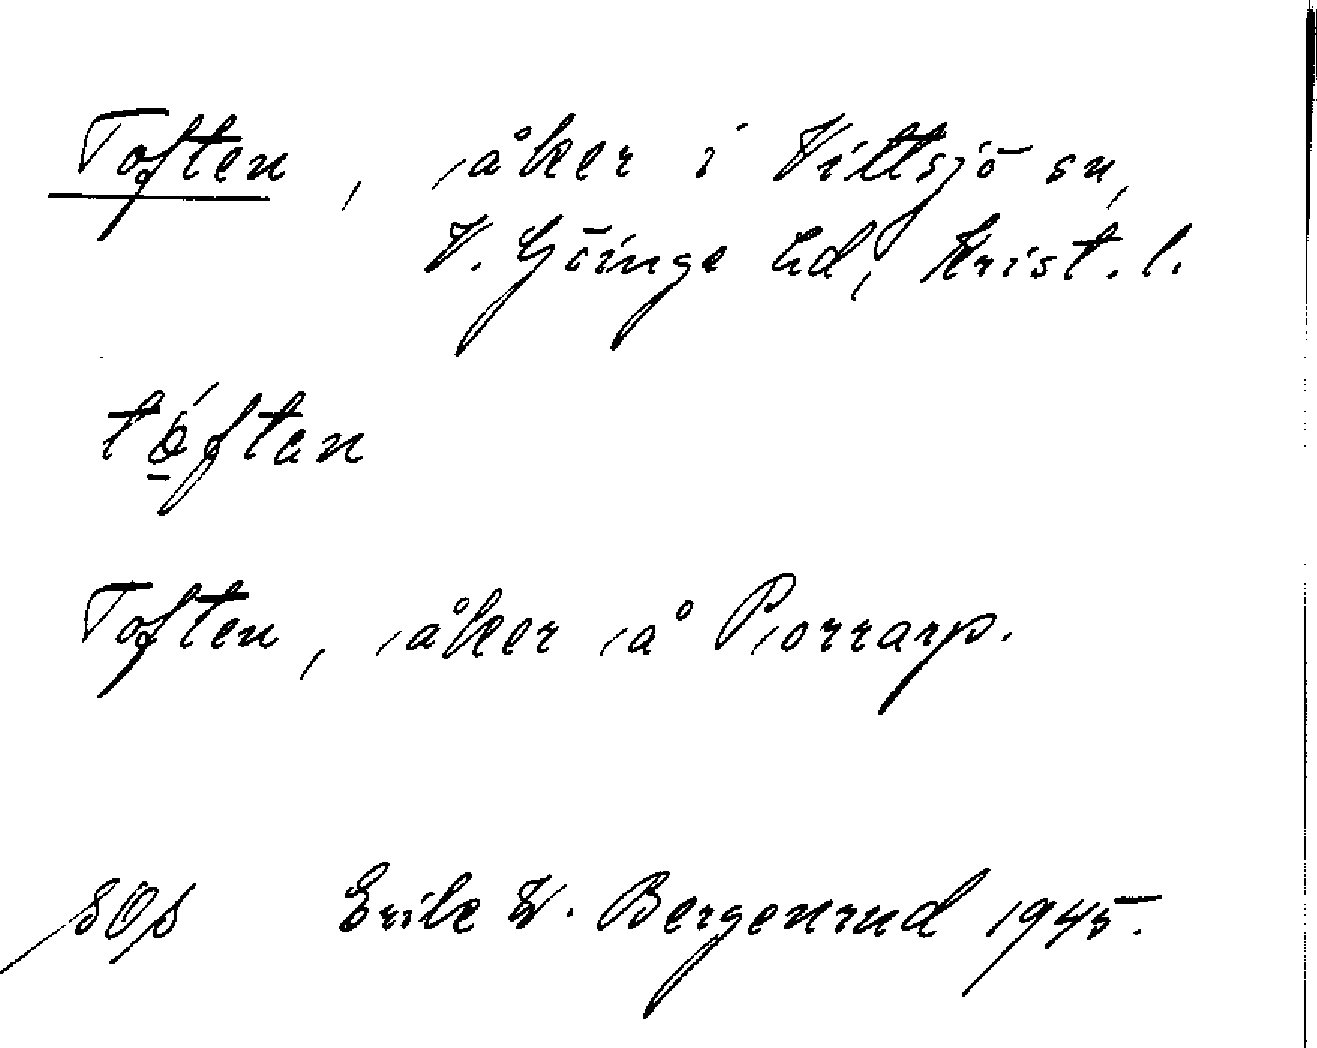 Toften, åker i Vittsjö sn,
V. Göinge hd, Krist. l.
tó̱ftan
Toften, åker å Porrarp.
Erik W. Bergenrud 1945.